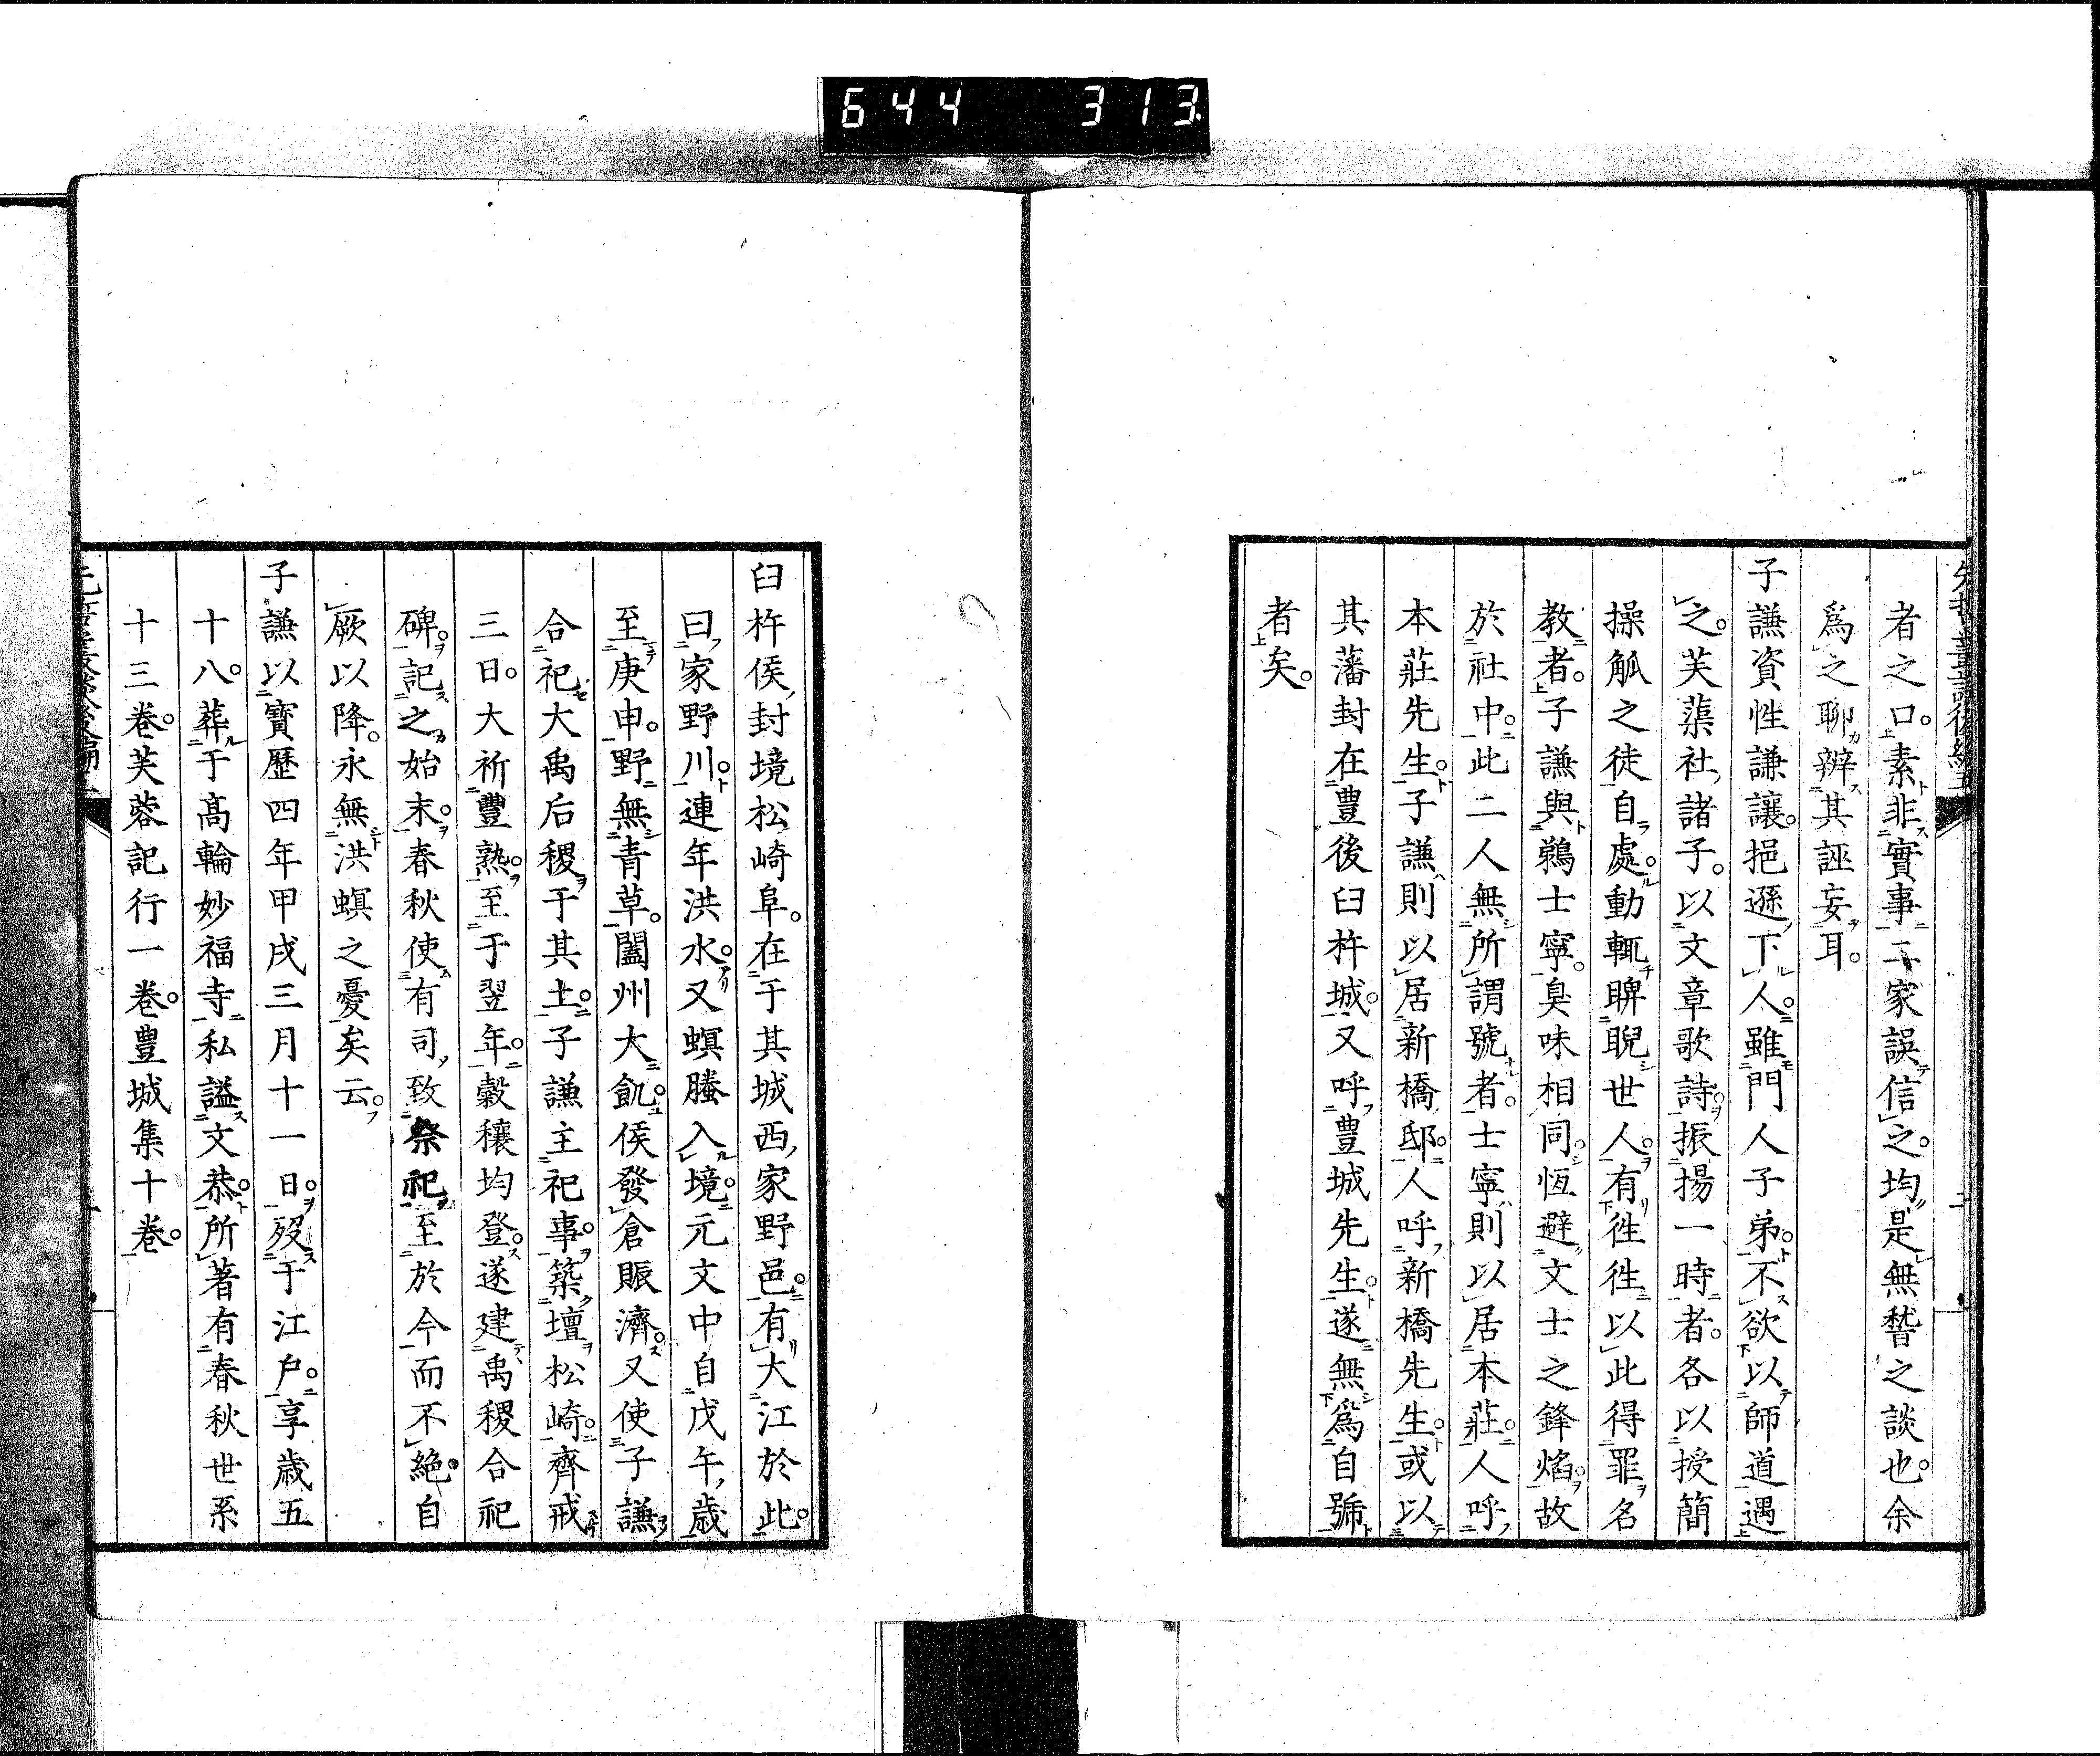 644 313
者之口。素非實事二家誤信之。均是無誓之談也。余
爲之聊辨其誣妄耳。
子謙資性謙讓。挹遜下人。雖門人子弟。不欲以師道遇
之。芙蕖社諸子。以文章歌詩。振揚一時者。各以授簡
操觚之徒自處。動輒睥睨世人。有徃徃以此得罪名
教者。子謙與鵜士寧。臭味相同。恆避文士之鋒焰。故
於社中。此二人無所謂號者。士寧則以居本莊。人呼
本莊先生。子謙則以居新橋邸。人呼新橋先生。或以
其藩封在豊後臼杵城。又呼豊城先生。遂無爲自號
者矣。
臼杵侯封境松崎阜。在于其城西家野邑。有大江於此。
曰家野川。連年洪水。又螟螣入境。元文中自戊午歳
至庚申。野無青草。闔州大飢。侯發倉賑濟。又使子謙
合祀大禹后稷于其土。子謙主祀事。築壇松崎。齊戒
三日。大祈豐熟。至于翌年。穀穰均登。遂建禹稷合祀
碑。記之始末。春秋使有司致祭祀至於今而不絶。自
厥以降。永無洪螟之憂矣云。
子謙以寶歷四年甲戌三月十一日。歿于江戸。享歳五
十八。葬于髙輪妙福寺。私謚文恭。所著有春秋世系
十三卷。芙蓉記行一卷。豊城集十卷。